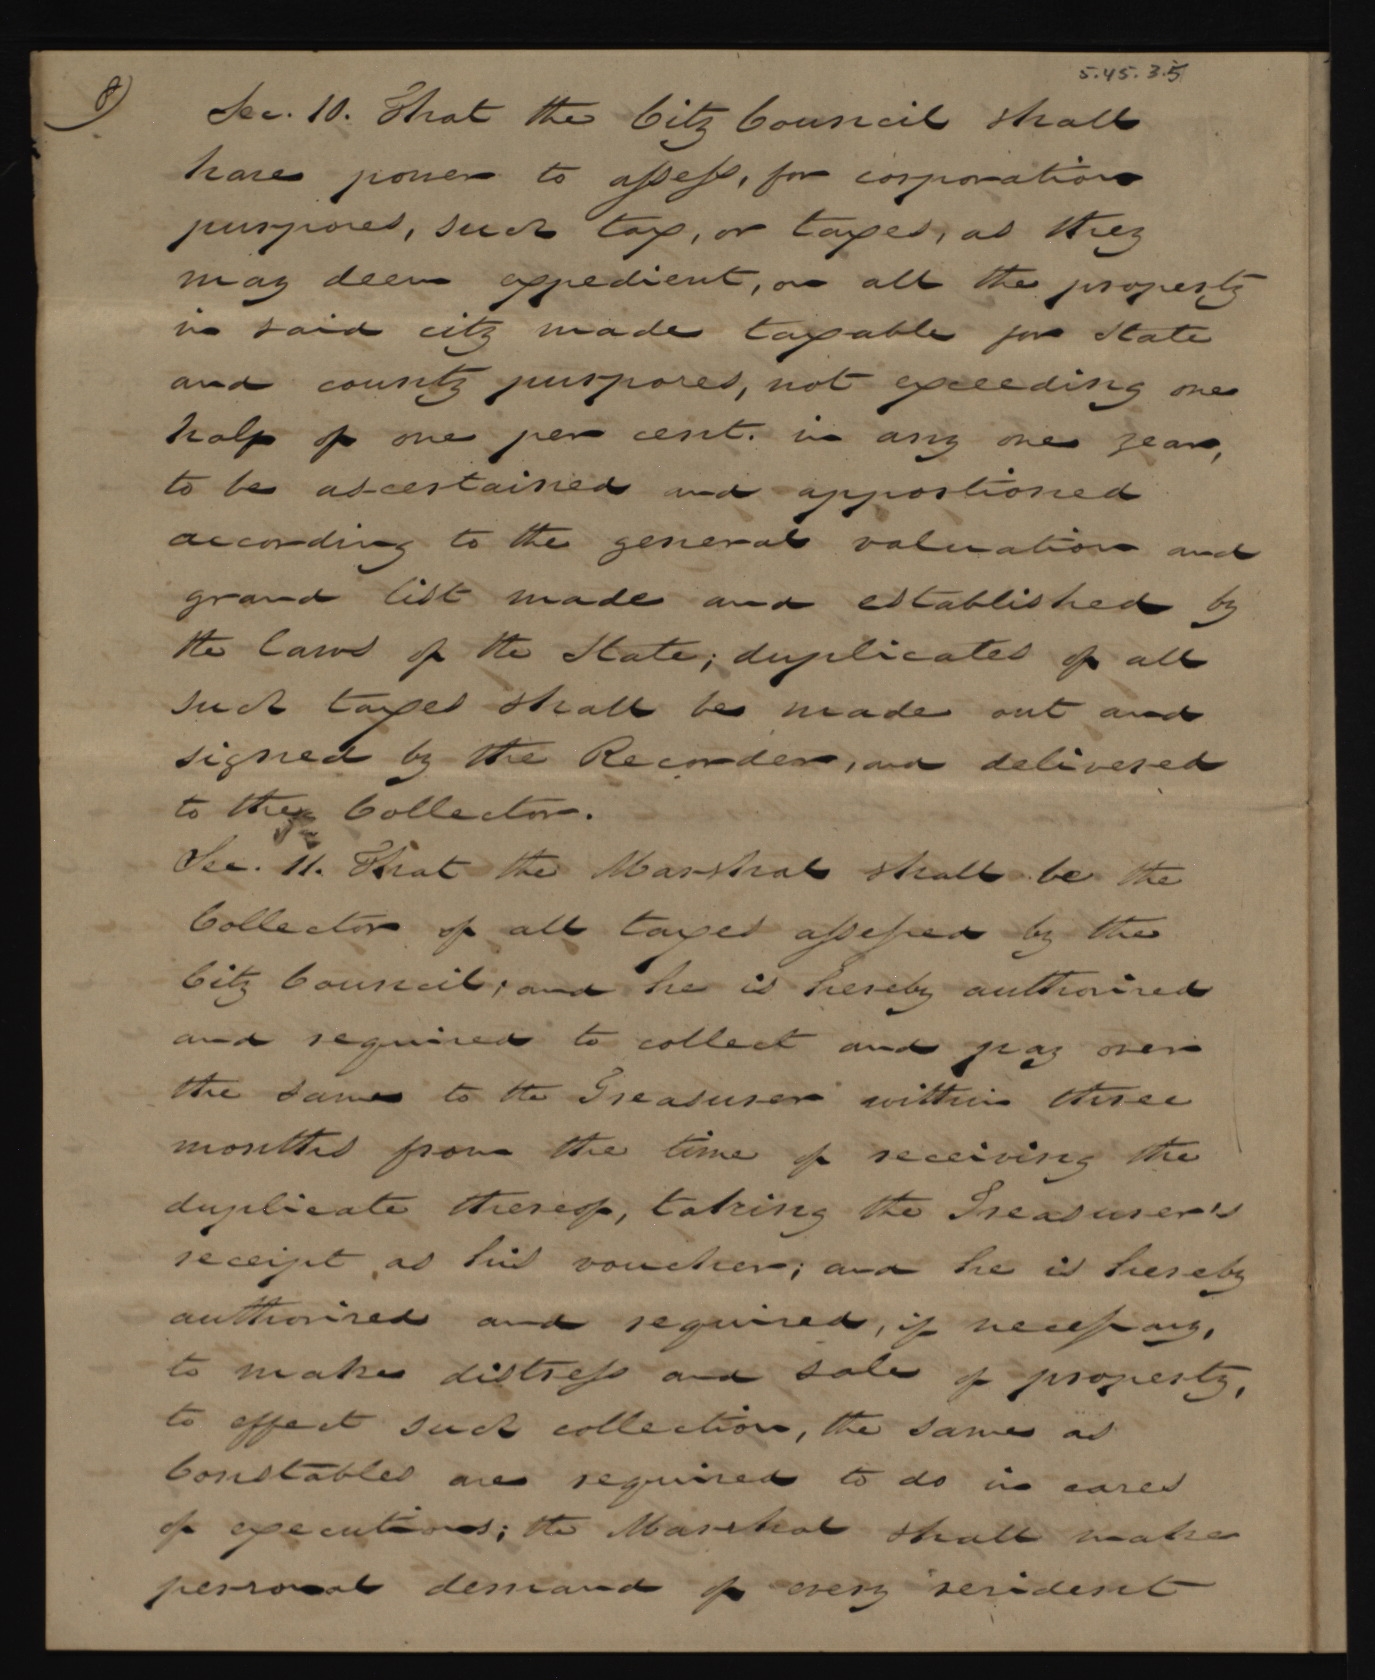 5.45.3.5
8)
Sec. 10. That the City Council shall
have power to assess, for corporation
purposes, such tax, or taxes, as they
may deem expedient, on all the property
in said city made taxable for State
and county purposes, not exceeding one
half of one per cent. in any one year,
to be ascertained and apportioned
according to the general valuation and
grand list made and established by
the laws of the State; duplicates of all
such taxes shall be made out and
signed by the Recorder, and delivered
to the Collector.
Sec. 11. That the Marshal shall be the
Collector of all taxes assessed by the
City Council; and he is hereby authorised
and required to collect and pay over
the same to the Treasurer within three
months from the time of receiving the
duplicate thereof, taking the Treasurer's
receipt as his voucher; and he is hereby
authorised and required, if necessary,
to make distress and sale of property,
to effect such collection, the same as
Constables are required to do in cases
of executions; the Marshal shall make
personal demand of every resident